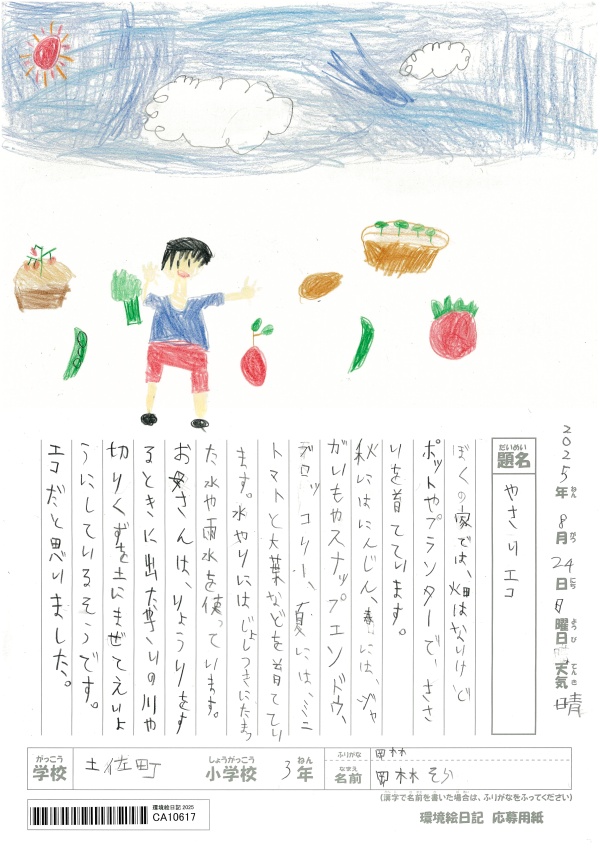 2025年8月24日日曜日天気晴
ねん がつ にち ようび てんき
だいめい
題名 やさいエコ
ぼくの家では、畑はないけど
ポットやプランターで、やさ
いを育てています。
秋にはにんじん、春には、ジャ
がいもやスナップエンドウ、
ブロッコリー、夏には、ミニ
トマトと大葉などを育ててい
ます。水やりにはじょしつきにたまっ
た水や雨水を使っています。
お母さんは、りょうりをす
るときに出たやさいの川や
切りくずを土にまぜてえいよ
うにしているそうです。
エコだと思いました。
がっこう しょうがっこう ねん ふりがな
学校 土佐町 小学校 3年
なまえ
名前 そら
(漢字で名前を書いた場合は、ふりがなをふってください)
環境絵日記 2025
CA10617
環境絵日記 応募用紙